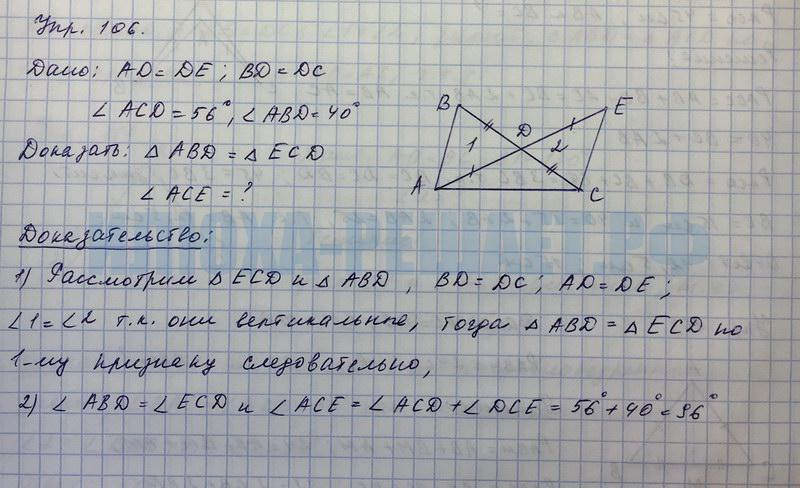 Упр. 106.
Дано: AD = DE ; BD = DC
∠ ACD = 56°, ∠ ABD = 40°
Доказать: △ ABD = △ ECD
∠ ACE = ?
B
E
D
1
2
A
C
ИЛЮХА-РЕШАЕТ.РФ
Доказательство:
1) Рассмотрим △ ECD и △ ABD , BD = DC ; AD = DE ;
∠1 = ∠2 т.к. они вертикальные, тогда △ ABD = △ ECD по
1-му признаку следовательно,
2) ∠ ABD = ∠ ECD и ∠ ACE = ∠ ACD + ∠ DCE = 56° + 40° = 96°